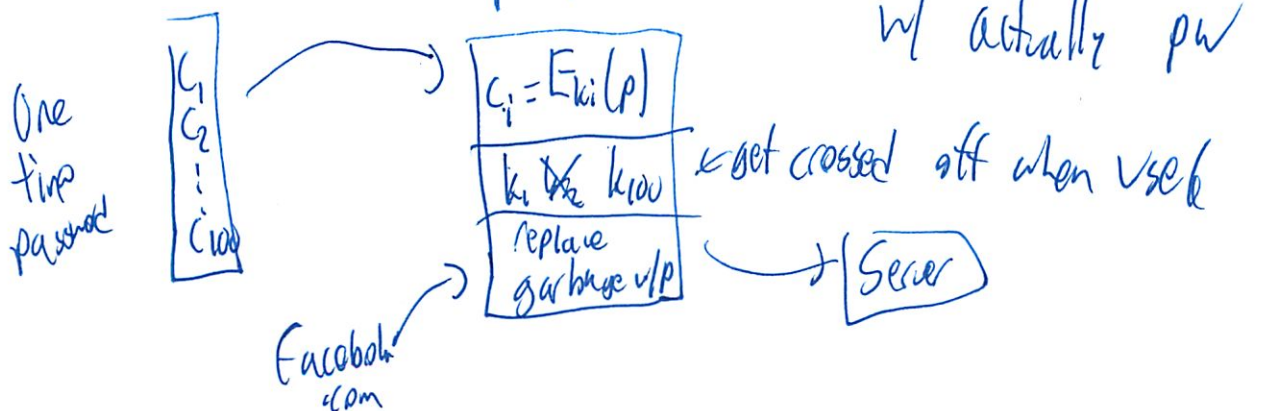 w/ actually pw
One
time
password
C₁
C₂
⋮
C₁₀₀
Cᵢ = E_ki(p)
k₁ k₂ k₁₀₀
← get crossed off when used
replace
garbage w/p
Server
Facebook
.com